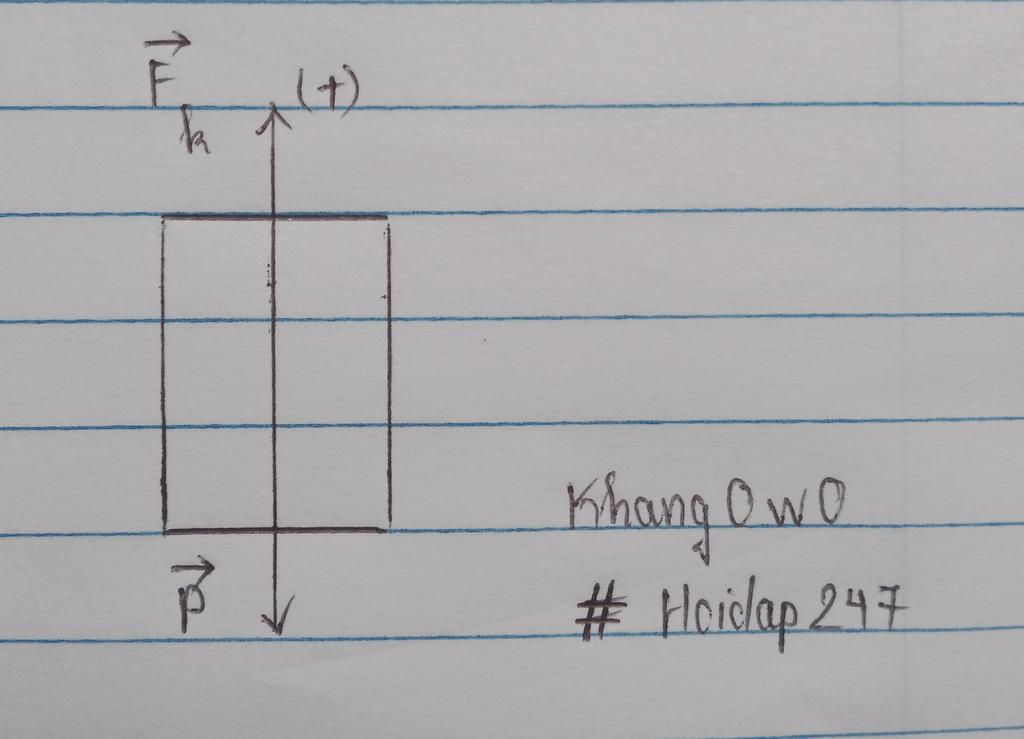 F⃗
k
(+)
P⃗
Khang OwO
# Hoidap 247